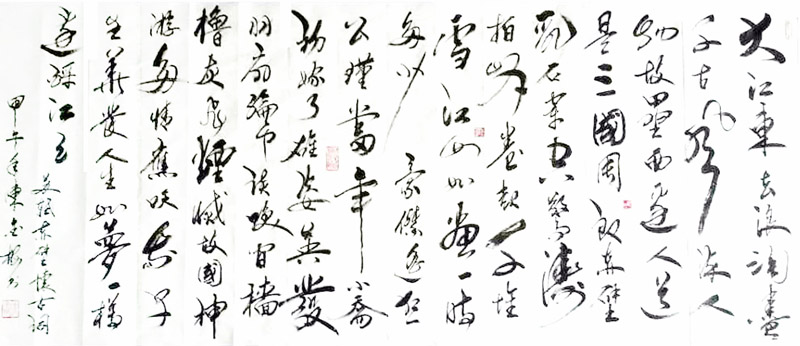 大江東去浪淘盡
千古风流人
物故垒西邊人道
是三國周郎赤壁
乱石穿空驚濤
拍岸卷起千堆
雪江山如畫一時
多少豪傑遥想
公瑾當年小喬
初嫁了雄姿英發
羽扇綸巾談笑間檣
櫓灰飛煙滅故國神
游多情應笑我早
生華发人生如夢一樽
還酹江月
苏轼赤壁懷古词
甲午年東